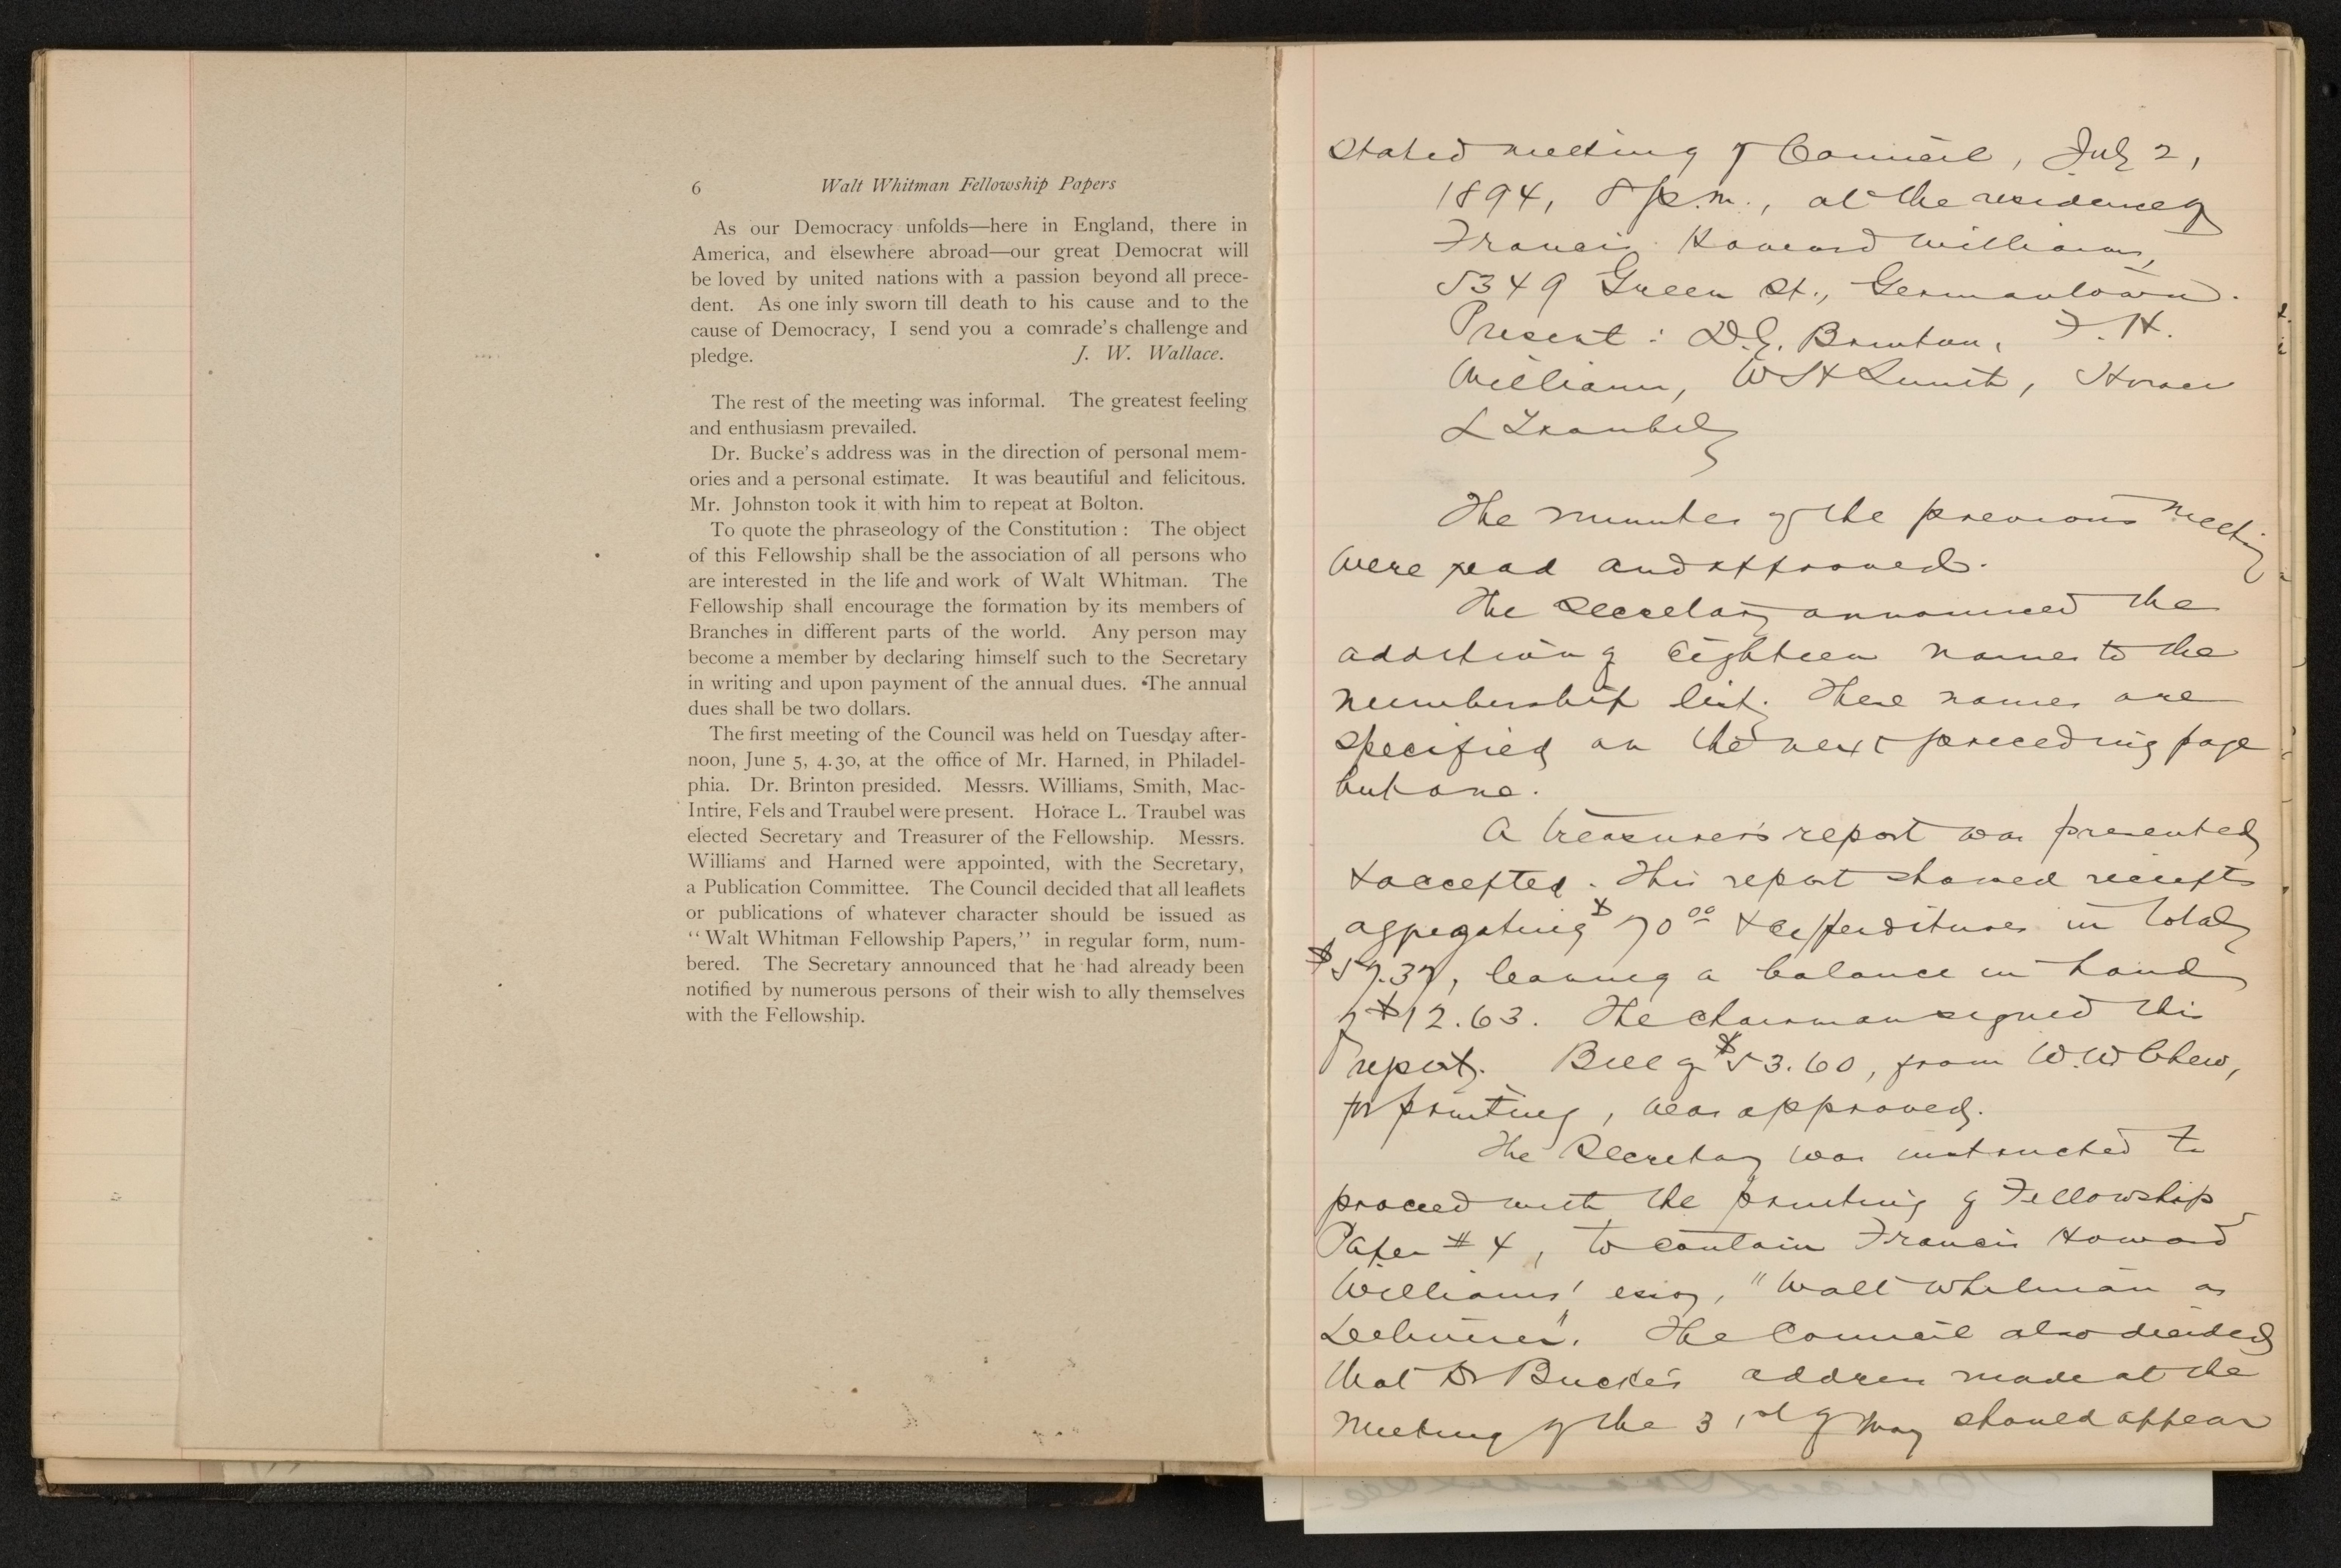 6 Walt Whitman Fellowship Papers
As our Democracy unfolds—here in England, there in
America, and elsewhere abroad—our great Democrat will
be loved by united nations with a passion beyond all prece-
dent. As one inly sworn till death to his cause and to the
cause of Democracy, I send you a comrade's challenge and
pledge. J. W. Wallace.
The rest of the meeting was informal. The greatest feeling
and enthusiasm prevailed.
Dr. Bucke's address was in the direction of personal mem-
ories and a personal estimate. It was beautiful and felicitous.
Mr. Johnston took it with him to repeat at Bolton.
To quote the phraseology of the Constitution : The object
of this Fellowship shall be the association of all persons who
are interested in the life and work of Walt Whitman. The
Fellowship shall encourage the formation by its members of
Branches in different parts of the world. Any person may
become a member by declaring himself such to the Secretary
in writing and upon payment of the annual dues. The annual
dues shall be two dollars.
The first meeting of the Council was held on Tuesday after-
noon, June 5, 4.30, at the office of Mr. Harned, in Philadel-
phia. Dr. Brinton presided. Messrs. Williams, Smith, Mac-
Intire, Fels and Traubel were present. Horace L. Traubel was
elected Secretary and Treasurer of the Fellowship. Messrs.
Williams and Harned were appointed, with the Secretary,
a Publication Committee. The Council decided that all leaflets
or publications of whatever character should be issued as
"Walt Whitman Fellowship Papers," in regular form, num-
bered. The Secretary announced that he had already been
notified by numerous persons of their wish to ally themselves
with the Fellowship.
Stated meeting of Council, July 2,
1894, 8 p.m., at the residence of
Francis Howard Williams,
5349 Green St., Germantown.
Present: D.G. Brinton, F. H.
Williams, W H Smith, Horace
L Traubel
The minutes of the previous meeting
were read and approved.
The Secretary announced the
addition of eighteen names to the
membership list. These names are
specified on the next preceding page
but one.
A treasurer's report was presented
& accepted. This report showed receipts
aggregating $70.00 & expenditures in total
$57.37, leaving a balance in hand
of $12.63. The chairman signed this
report. Bill of $53.60, from W.W Chew,
for printing, was approved.
The Secretary was instructed to
proceed with the printing of Fellowship
Paper # 4, to contain Francis Howard
Williams' essay, "Walt Whitman as
Deliverer". The Council also decided
that Dr Bucke's address made at the
meeting of the 31st of May should appear